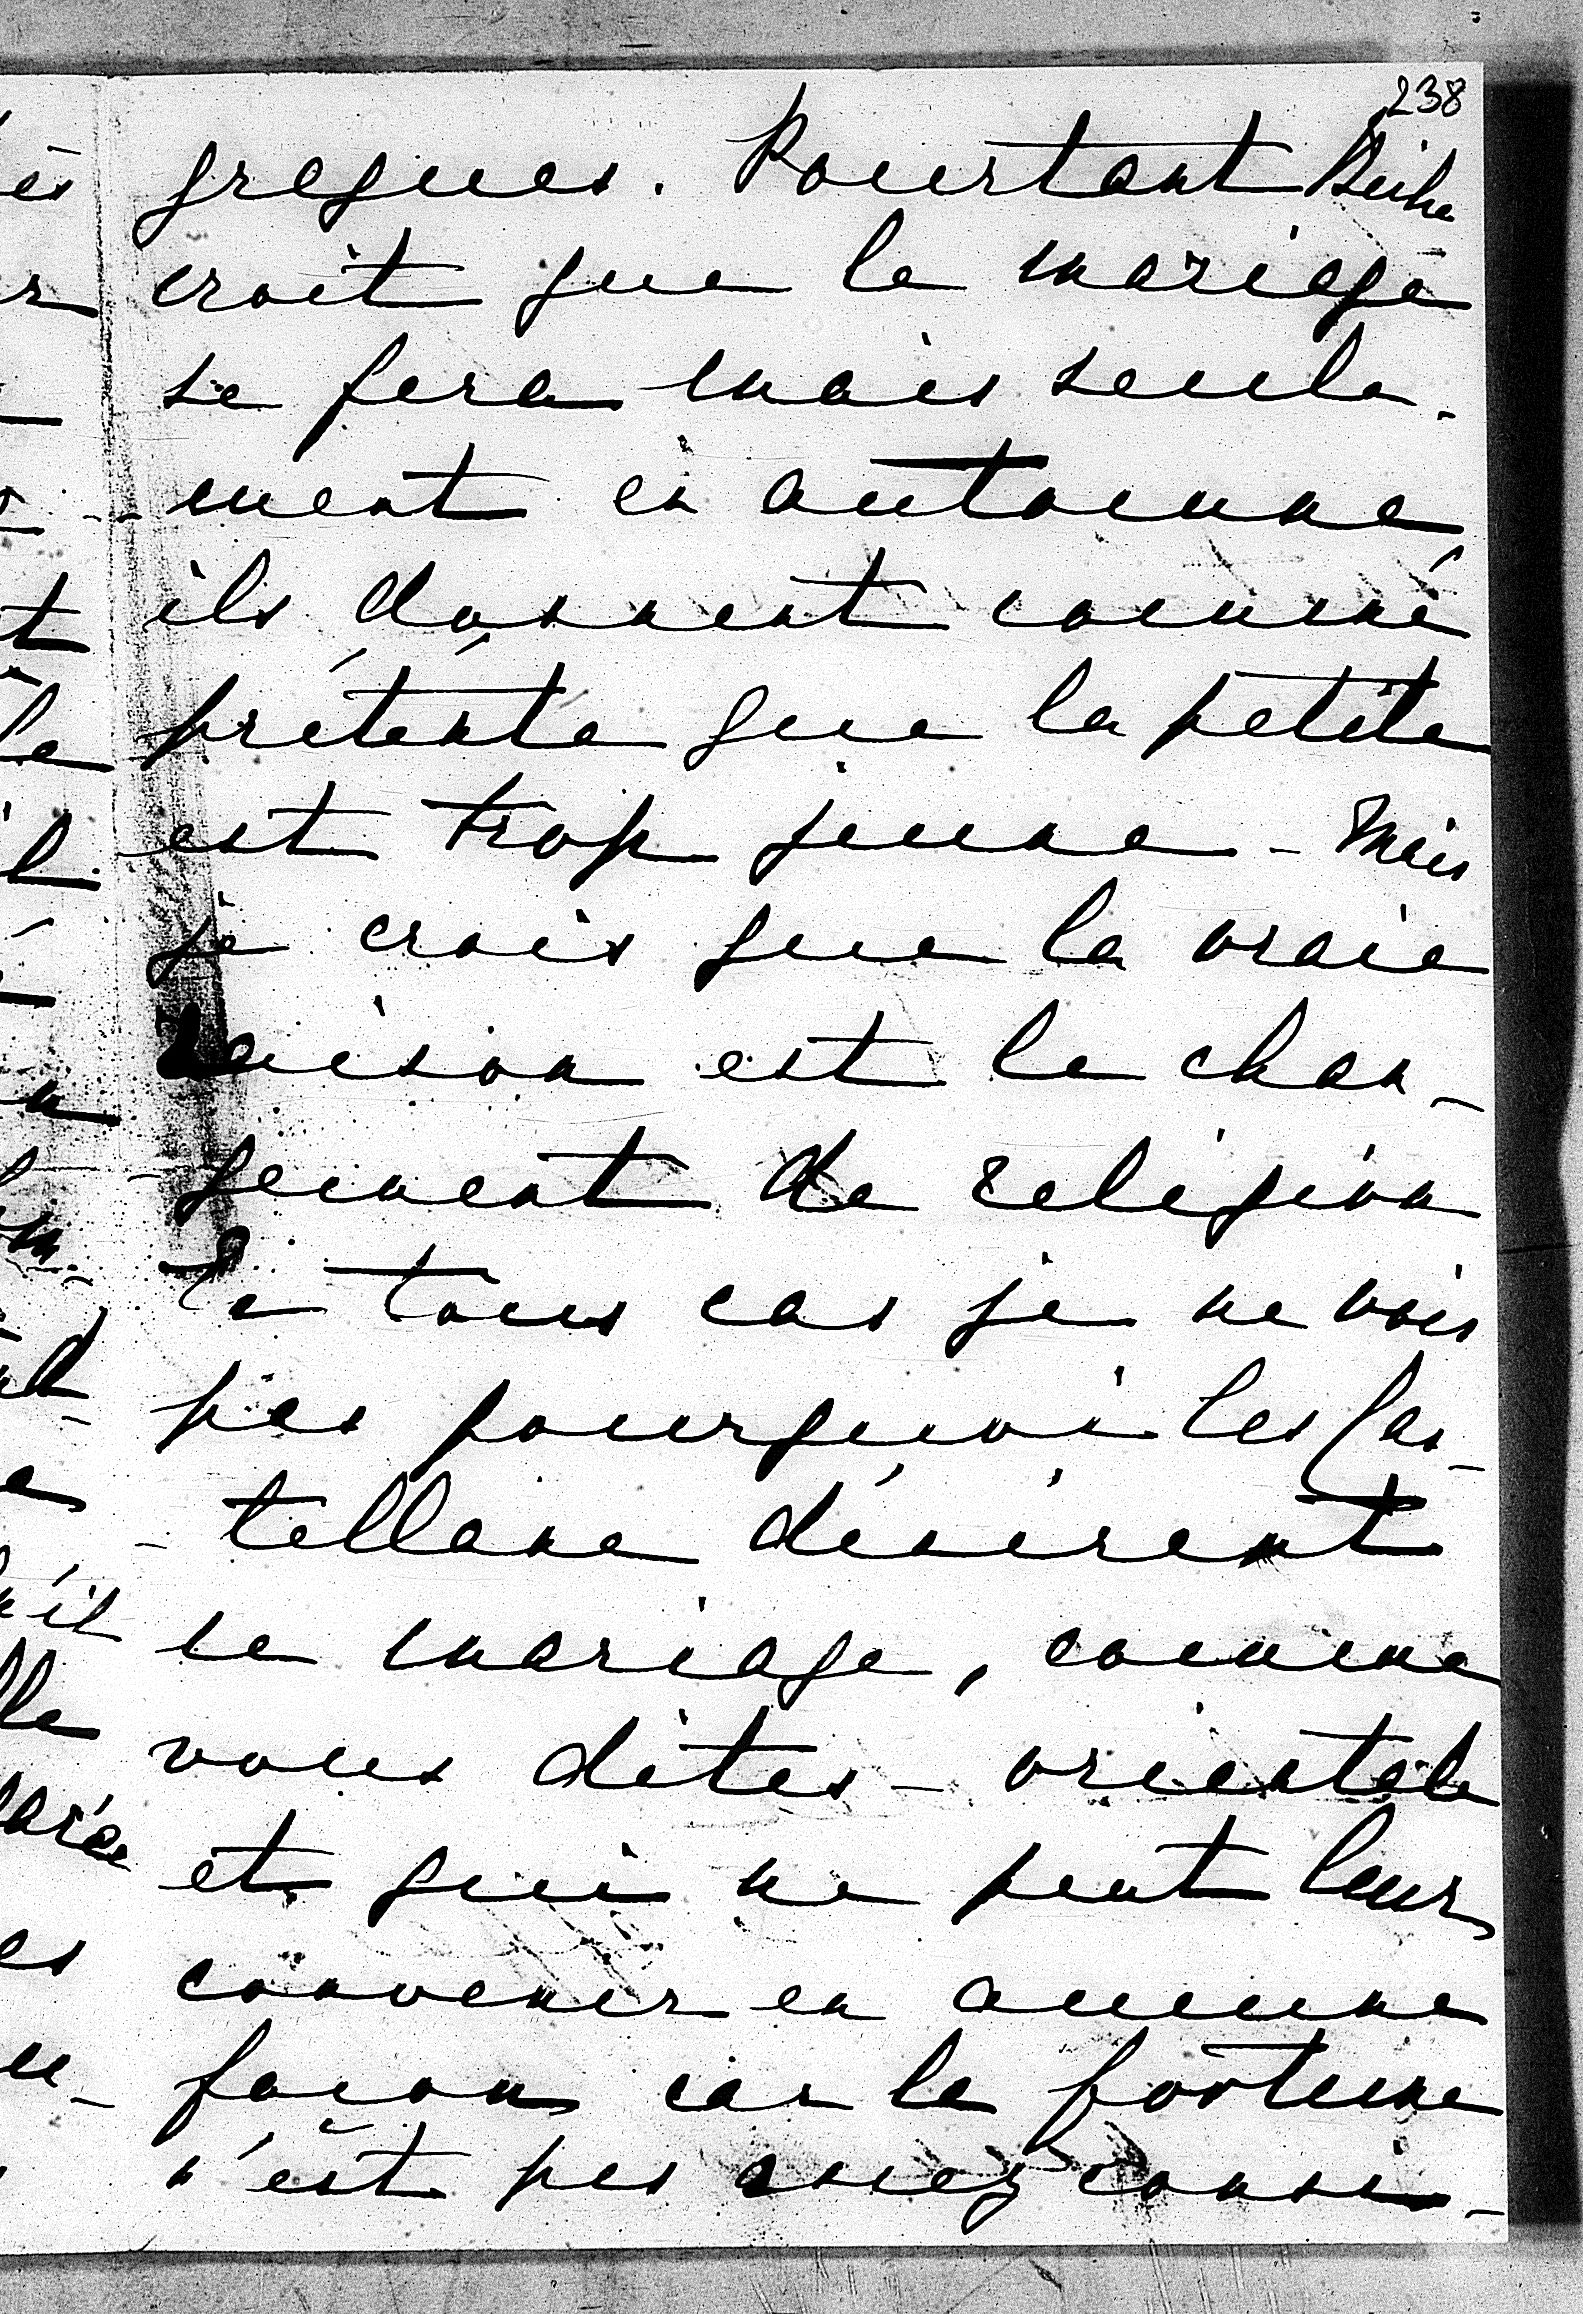 238
gregues. Pourtant Biche
croit que le mariage
se fera mais seule-
-ment en automne,
ils donnent comme
prétexte que la petite
est trop jeune - Mais
je crois que la vraie
raison est le chan-
-gement de religion
En tous cas je ne vois
pas pourquoi les Cas-
-tellane désirent
ce mariage, comme
vous dites - orientale
et qui ne peut leur
convenir en aucune
façon, car la fortune
n'est pas assez consi-